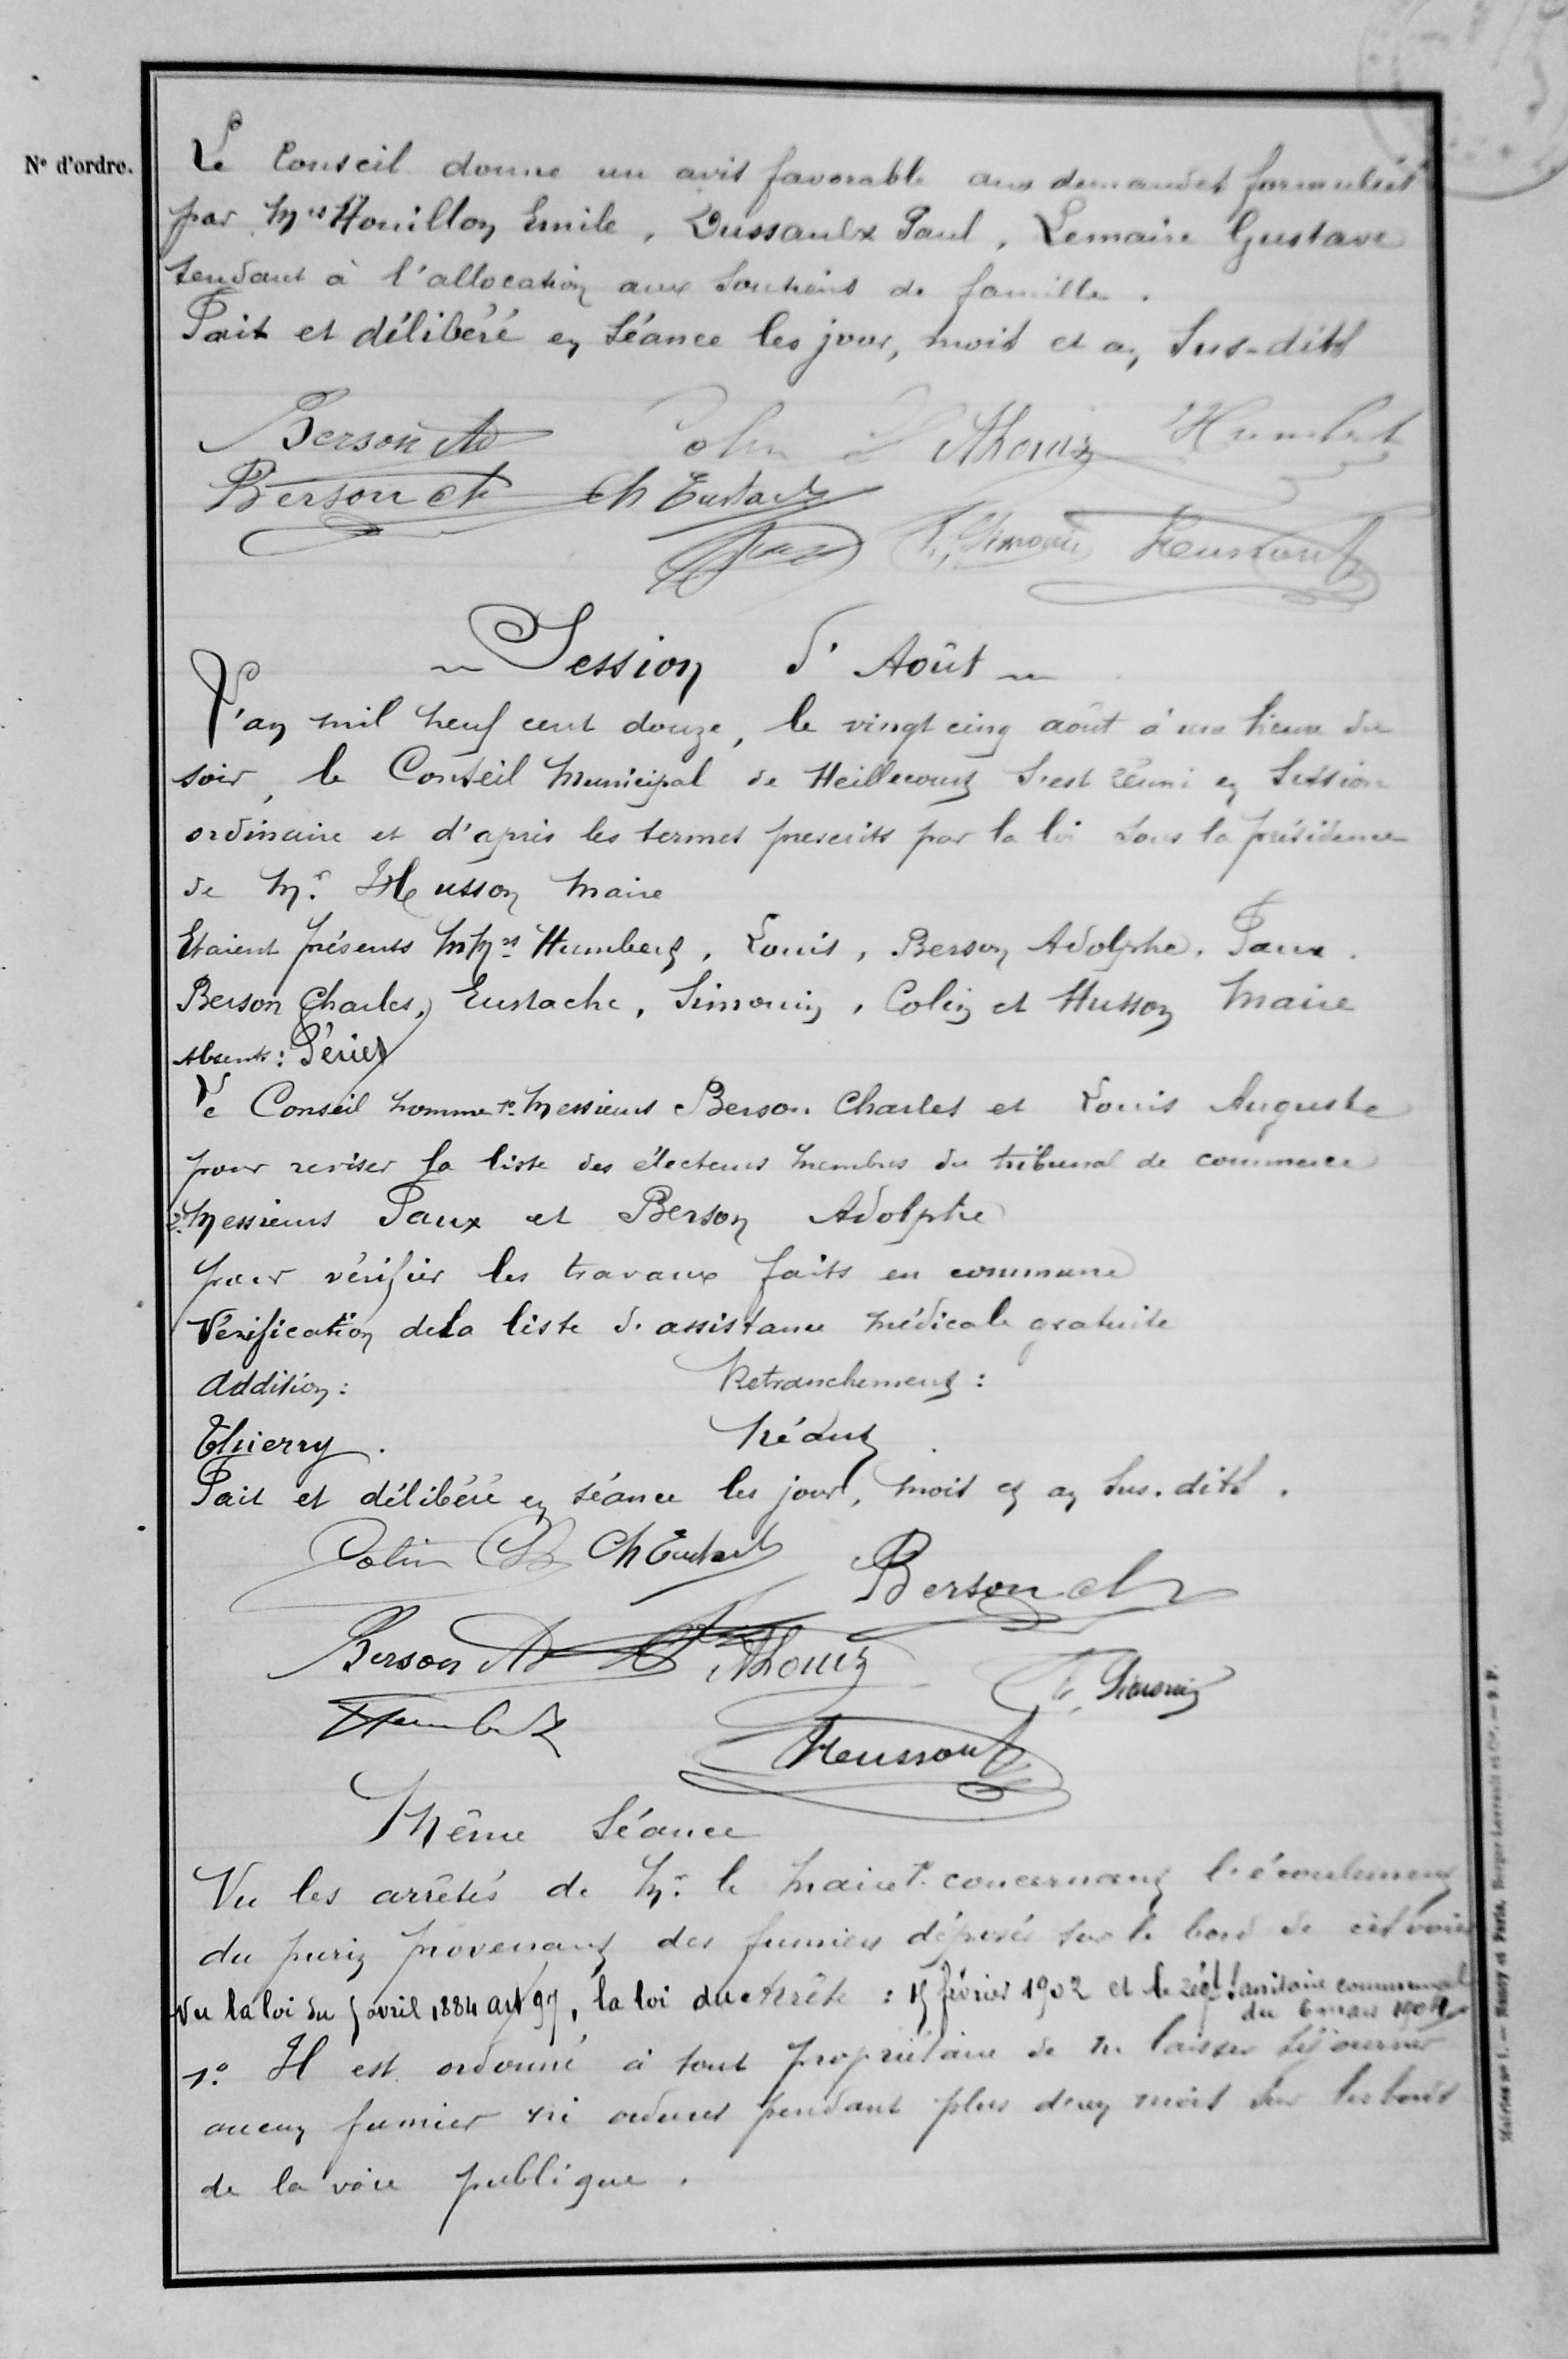 N° d'ordre.
Le Conseil donne un avis favorable aux demandes formulées
par Mrs Houillon Emile, Dussaulx Paul, Lemaire Gustave
tendant à l'allocation aux soutiens de famille.
Fait et délibéré en séance les jour, mois et an sus-dits
Berson Ad Colin ALouis Humbert
Berson Ch Ch Eustache
F. Simonin Husson
~ Session d'Août ~
L'an mil neuf cent douze, le vingt cinq août à une heure du
soir, le Conseil Municipal de Heillecourt s'est réuni en session
ordinaire et d'après les termes prescrits par la loi sous la présidence
de Mr. Husson Maire
Etaient présents MMrs Humbert, Louis, Berson Adolphe, Paux.
Berson Charles, Eustache, Simonin, Colin et Husson Maire
Absents: Périer
Le Conseil nomme 1° Messieurs Berson Charles et Louis Auguste
pour reviser la liste des électeurs membres du tribunal de commerce
2° Messieurs Paux et Berson Adolphe
pour vérifier les travaux faits en commune
Vérification de la liste d'assistance médicale gratuite
Addition: Retranchement:
Thierry. 
Fait et délibéré en séance les jour, mois et an sus-dits.
Colin Ch Eustache Berson Ch
Berson Ad ALouis F. Simonin
Humbert Husson
Même Séance
Vu les arrêtés de Mr. le Maire concernant l'écoulement
du purin provenant des fumiers déposés sur le bord de cet voies
Vu la loi du 5 avril 1884 art 97, la loi du Arrête: 15 février 1902 et le régt sanitaire communal
du 6 mars 1904
1° Il est ordonné à tout propriétaire de ne laisser séjourner
aucun fumier ni ordures pendant plus d'un mois sur les bords
de la voie publique.
Mairies n° 1. — Nancy et Paris, Berger-Levrault et Cie. — 9. P.